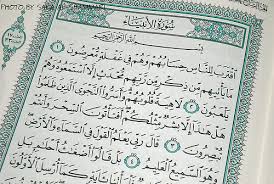 PHOTO BY
سُورَةُ الأَنبِيَاءِ
بِسْمِ اللَّهِ الرَّحْمَٰنِ الرَّحِيمِ
اقْتَرَبَ لِلنَّاسِ حِسَابُهُمْ وَهُمْ فِي غَفْلَةٍ مُعْرِضُونَ ١
مَا يَأْتِيهِم مِّن ذِكْرٍ مِّن رَّبِّهِم مُّحْدَثٍ إِلَّا اسْتَمَعُوهُ وَهُمْ
يَلْعَبُونَ ٢ لَاهِيَةً قُلُوبُهُمْ وَأَسَرُّوا النَّجْوَى الَّذِينَ ظَلَمُوا
هَلْ هَٰذَا إِلَّا بَشَرٌ مِّثْلُكُمْ أَفَتَأْتُونَ السِّحْرَ وَأَنتُمْ
تُبْصِرُونَ ٣ قَالَ رَبِّي يَعْلَمُ الْقَوْلَ فِي السَّمَاءِ وَالْأَرْضِ
وَهُوَ السَّمِيعُ الْعَلِيمُ ٤ بَلْ قَالُوا أَضْغَاثُ أَحْلَامٍ بَلِ
كَمَا أُرْسِلَ الْأَوَّلُونَ